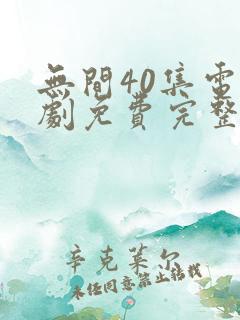 無間40集電
劇免費完整
辛克萊尔
未经同意禁止转载